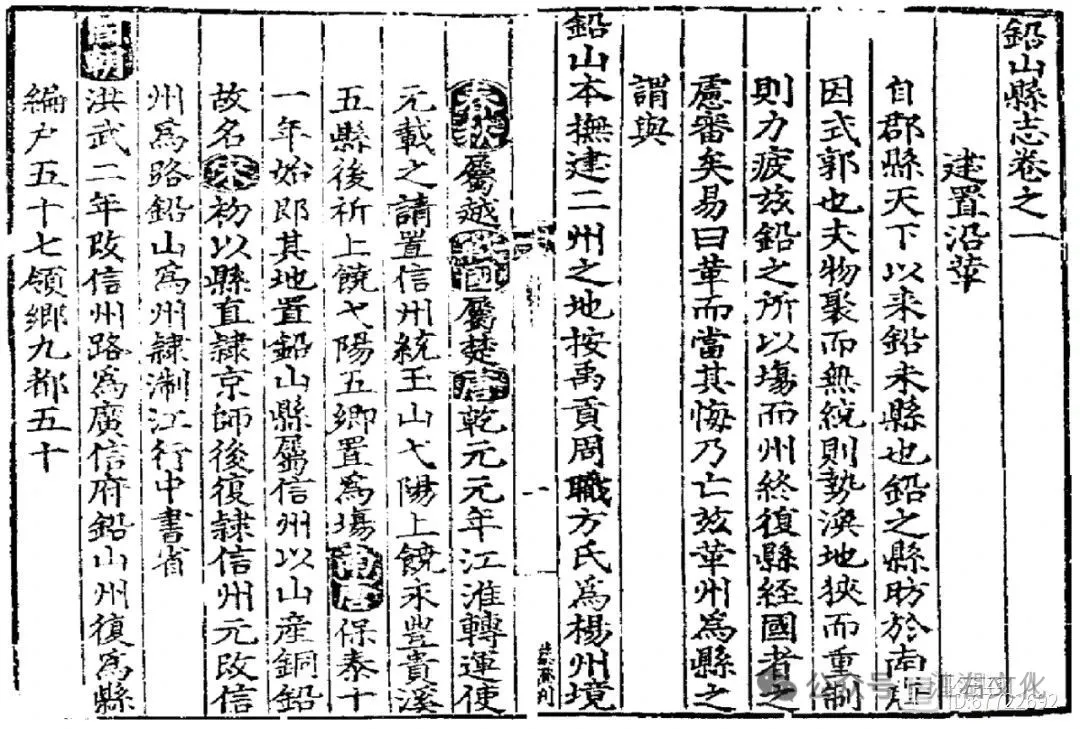 鉛山縣志卷之一
建置沿革
自郡縣天下以来鉛未縣也鉛之縣昉於南唐
因式郭也夫物聚而無統則勢渙地狹而重制
則力疲玆鉛之所以塲而州終復縣経國者之
慮審矣易曰革而當其悔乃亡玆革州為縣之
謂與
鉛山本撫建二州之地按禹貢周職方氏為楊州境
春秋屬越戰國屬楚唐乾元元年江淮轉運使
元載之請置信州統玉山弋陽上饒永豊貴溪
五縣後祈上饒弋陽五鄉置為塲南唐保泰十
一年始即其地置鉛山縣屬信州以山産銅鉛
故名宋初以縣直隷京師後復隷信州元改信
州為路鉛山為州隷淛江行中書省
國朝洪武二年改信州路為廣信府鉛山州復為縣
編户五十七領鄉九都五十
一
公众号 江湖文化
ID:67722692